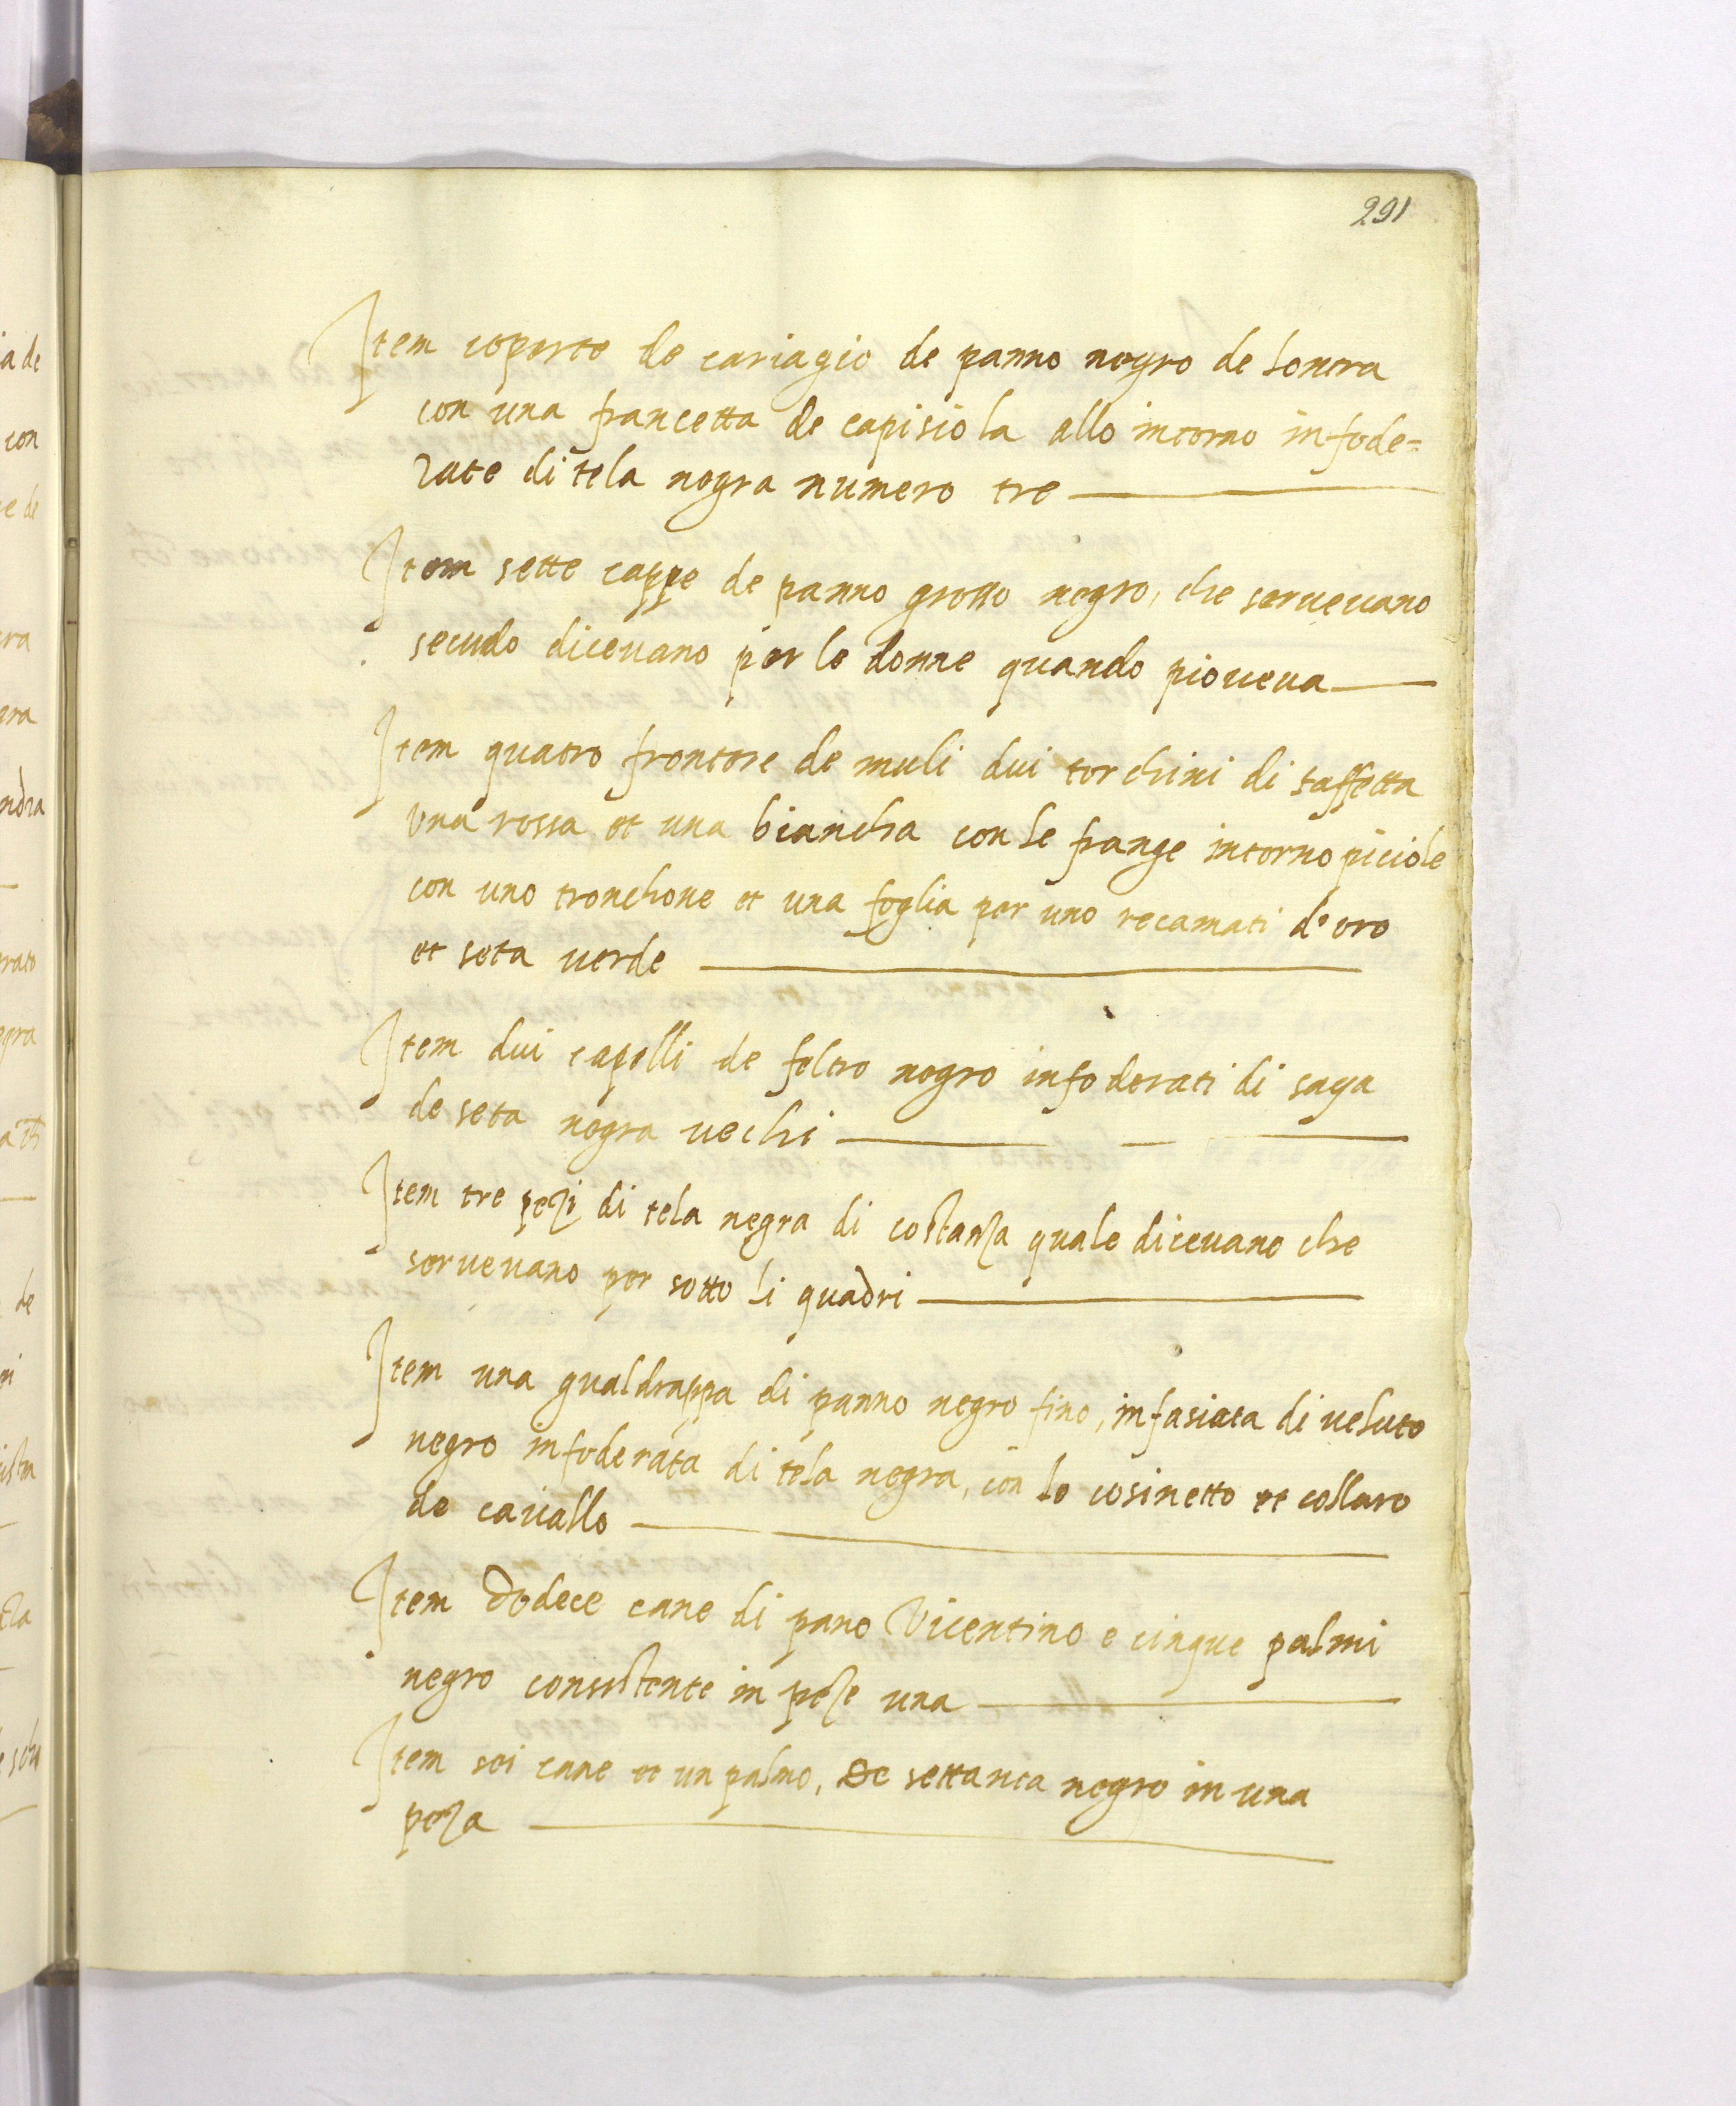 291
Item coperte de cariagio de panno negro de Lontra
con una francetta de capisciola allo intorno infode=
rate di tela negra numero tre
Item sette cappe de panno grosso negro, che servevano
secudo dicevano per le donne quando pioveva
Item quatro frontere de muli dui torchini di taffetta
una rossa et una biancha con le frange intorno piciole
con uno tronchone et una foglia per uno recamati d'oro
et seta verde
Item dui capelli de feltro negro infoderati di saya
de seta negra vechi
Item tre pezi di tela negra di costanza quale dicevano che
servevano per sotto li quadri
Item una gualdrappa di panno negro fino, infasiata di veluto
negro infoderata di tela negra, con lo cosinetto et collaro
de cavallo
Item Dodece cane di pano Vicentino e cinque palmi
negro consistente in peze una
Item sei cane et un palmo, de settanta negro in una
peza